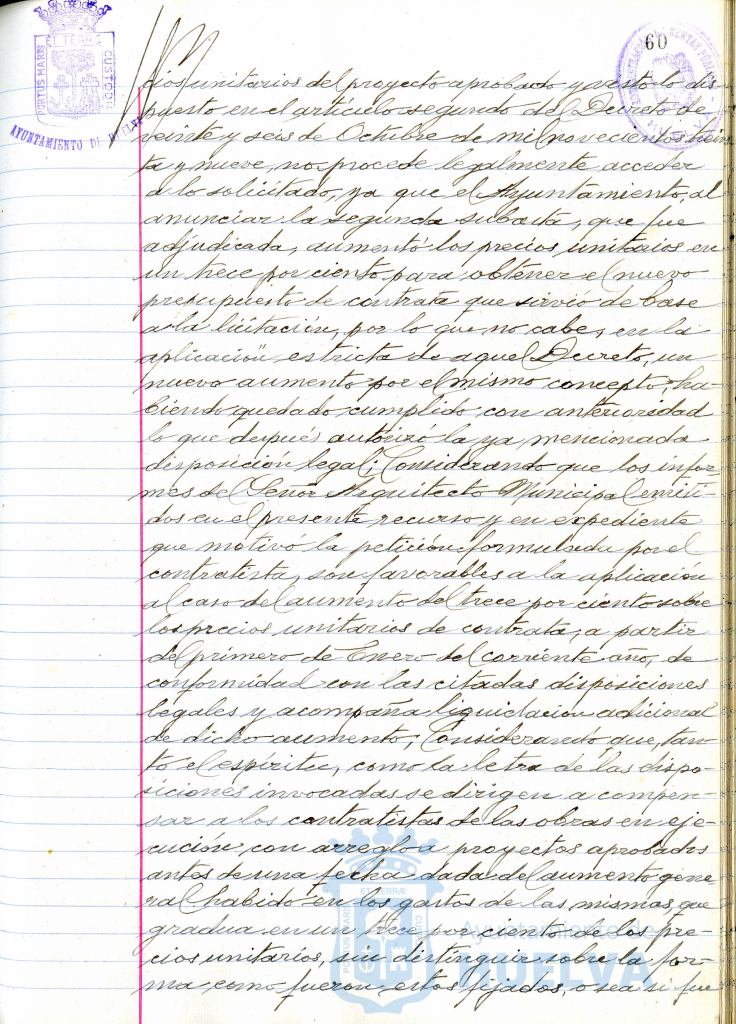 60
PORTUS MARIS
ET TERRÆ
CUSTODIA
AYUNTAMIENTO DE HUELVA
cios unitarios del proyecto aprobado y visto lo dis-
puesto en el artículo segundo del Decreto de
veinte y seis de Octubre de mil novecientos trein
ta y nueve, no procede legalmente acceder
a lo solicitado, ya que el Ayuntamiento, al
anunciar la segunda subasta, que fue
adjudicada, aumentó los precios unitarios en
un trece por ciento para obtener el nuevo
presupuesto de contrata que sirvió de base
a la licitación, por lo que no cabe, en la
aplicación estricta de aquel Decreto, un
nuevo aumento por el mismo concepto, ha-
biendo quedado cumplido con anterioridad
lo que después autorizó la ya mencionada
disposición legal; Considerando que los infor-
mes del Señor Arquitecto Municipal emiti-
dos en el presente recurso y en expediente
que motivó la petición formulada por el
contratista, son favorables a la aplicación
al caso del aumento del trece por ciento sobre
los precios unitarios de contrata, a partir
del primero de Enero del corriente año, de
conformidad con las citadas disposiciones
legales y acompaña liquidación adicional
de dicho aumento; Considerando que, tan-
to el espíritu, como la letra de las dispo-
siciones invocadas se dirigen a compen-
sar a los contratistas de las obras en eje-
cución con arreglo a proyectos aprobados
antes de una fecha dada del aumento gene-
ral habido en los gastos de las mismas, que
gradua en un trece por ciento de los pre-
cios unitarios, sin distinguir sobre la for-
ma como fueron estos fijados, o sea si fue
PORTUS MARIS
ET TERRÆ
CUSTODIA
Ayuntamiento de
HUELVA